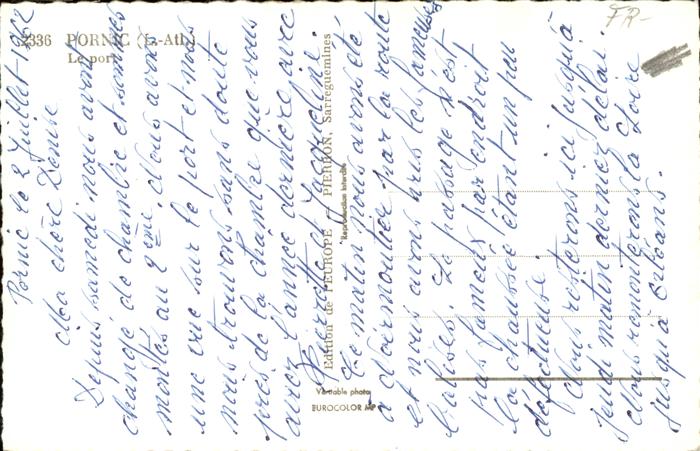 2336 PORNIC (L.-Atl.)
Le port
FR-
Pornic le 2 Juillet 1962
Ma chère Denise
Depuis samedi nous avons
changé de chambre et sommes
montés au 2ème. Nous avons
une vue sur le port et nous
nous trouvons sans doute
près de la chambre que vous
aviez l'année dernière avec
Pierrette et Jacqueline.
Ce matin nous avons été
à Noirmoutier par la route
et nous avons pris les fameuses
balises. Le passage n'est
pas fameux par endroit
la chaussée étant un peu
défectueuse.
Nous resterons ici jusqu'à
jeudi matin dernier délai.
Nous remonterons la Loire
jusqu'à Orléans.
Edition de l'EUROPE — PIERRON, Sarreguemines
Reproduction interdite
Véritable photo
EUROCOLOR MP